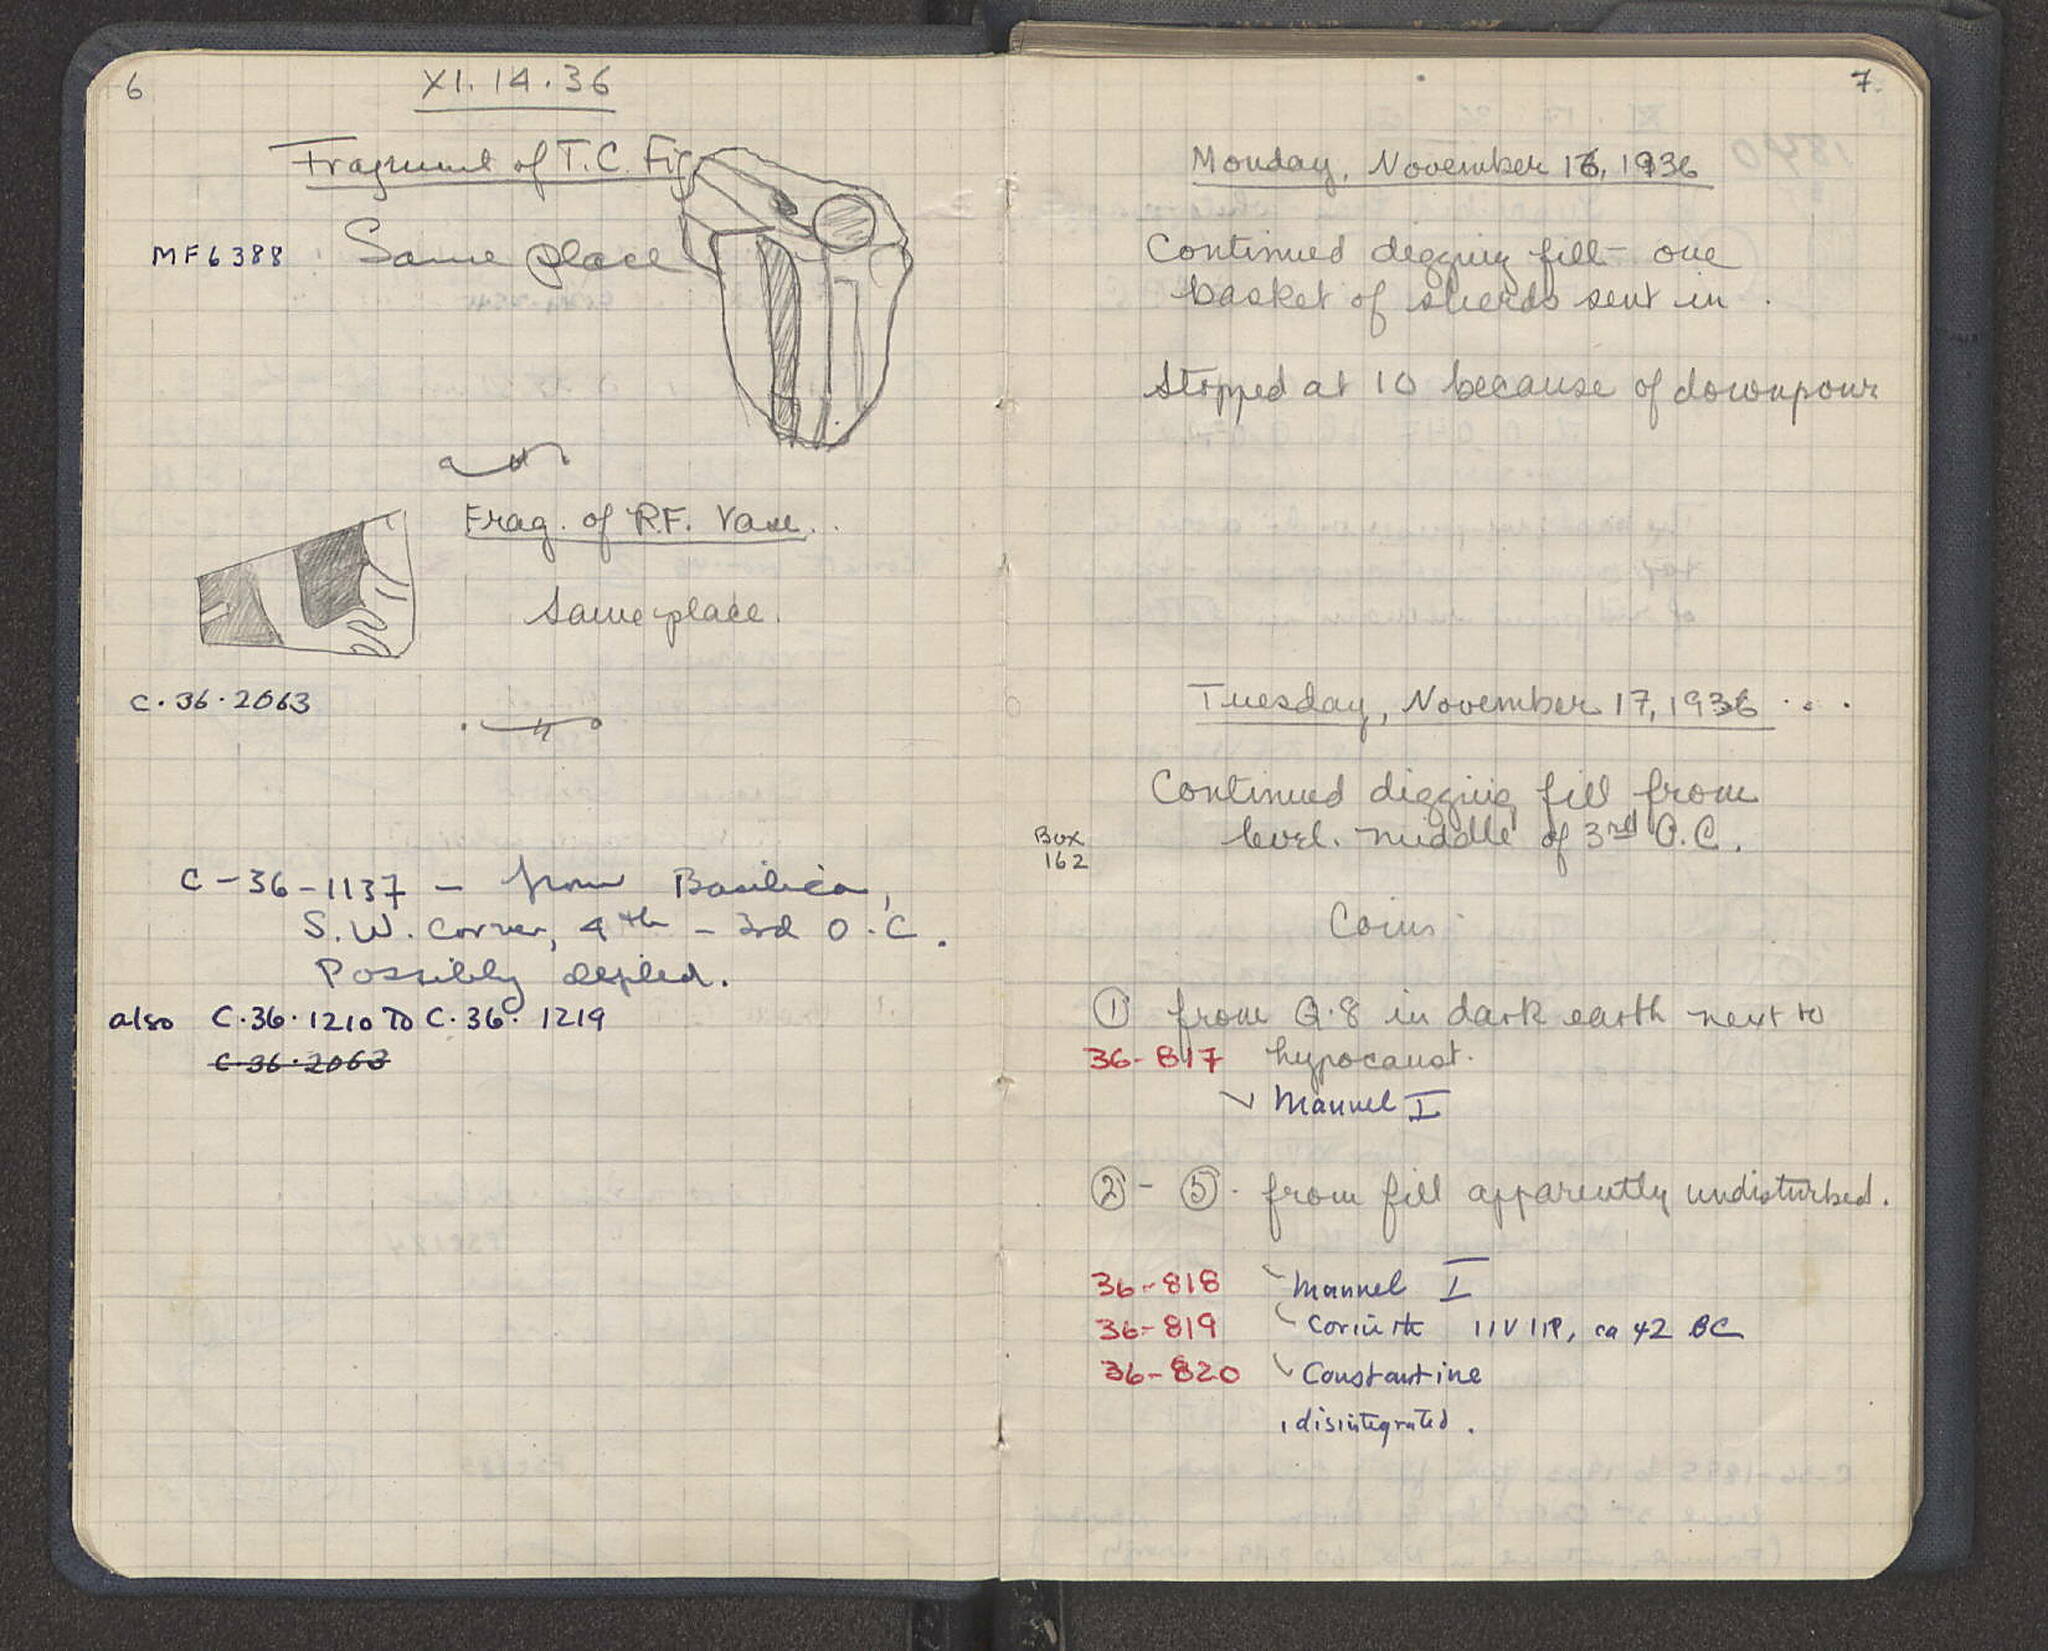 6
XI.14.36
Fragment of T.C. Fig
MF6388 Same place
Frag. of R.F. Vase.
Same place.
C.36.2063
C-36-1137 - from Basilica,
S.W. corner, 4th - 3rd O.C.
Possibly
also C.36.1210 TO C.36.1219
C.36.2063
7.
Monday, November 16, 1936
Continued digging fill - one
basket of sherds sent in.
Stopped at 10 because of downpour
Tuesday, November 17, 1936
Continued digging fill from
level. middle of 3rd O.C.
Box
162
Coins
① from Q.8 in dark earth next to
36-817 hypocaust.
Manuel I
② - ⑤. from fill apparently undisturbed.
36-818 Manuel I
36-819 Corinth IIVIIR, ca 42 BC
36-820 Constantine
1 disintegrated.